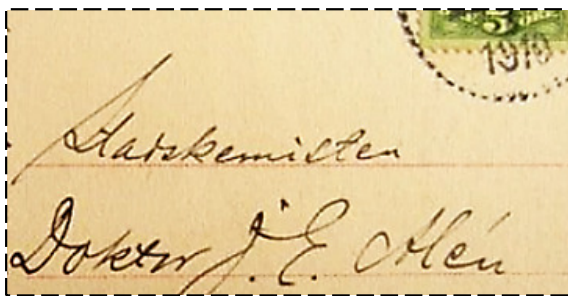 5
1910
Stadskemisten
Doktor J. E. Alén